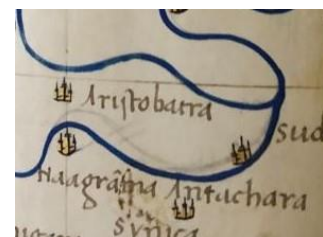 Aristobatra
sud
Naagrama Antachara
Synica